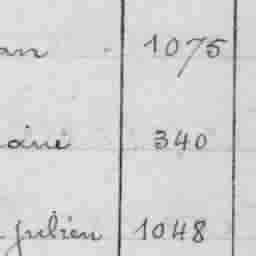 an 1075
340
Julien 1048